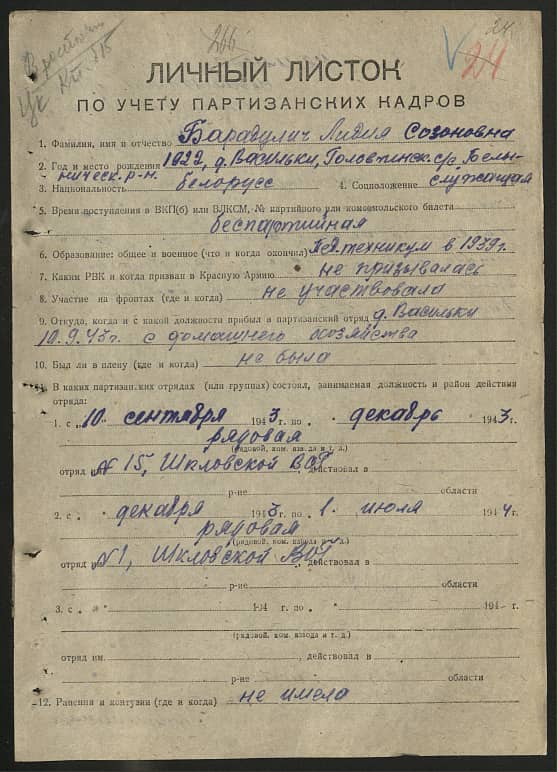 24
266
24
ЛИЧНЫЙ ЛИСТОК
ПО УЧЕТУ ПАРТИЗАНСКИХ КАДРОВ
1. Фамилия, имя и отчество Барадулич Лидия Созоновна
2. Год и место рождения 1922, д. Васильки, Головтинск. с/с Белы-
ническ. р-н.
3. Национальность белорусс 4. Соцположение служащая
5. Время поступления в ВКП(б) или ВЛКСМ, № партийного или комсомольского билета
беспартийная
6. Образование: общее и военное (что и когда окончил) Педтехникум в 1939 г.
7. Каким РВК и когда призван в Красную Армию не призывалась
8. Участие на фронтах (где и когда) не участвовала
9. Откуда, когда и с какой должности прибыл в партизанский отряд д. Васильки
10.9.43 г. с домашнего хозяйства
10. Был ли в плену (где и когда) не была
11. В каких партизанских отрядах (или группах) состоял, занимаемая должность и район действия
отряда:
1. с „10 сентября 1943 г. по „ декабрь 1943 г.
рядовая
(рядовой, ком. взвода и т. д.)
отряд № 15, Шкловской ВОГ, действовал в
р-не области
2. с „ декабря 1943 г. по „1. июля 1944 г.
рядовая
(рядовой, ком. взвода и т. д.)
отряд №1, Шкловской ВОГ, действовал в
р-не области
3. с „ 194 г. по „ 194 г.
(рядовой, ком. взвода и т. д.)
отряд им. , действовал в
р-не области
12. Ранения и контузии (где и когда) не имела